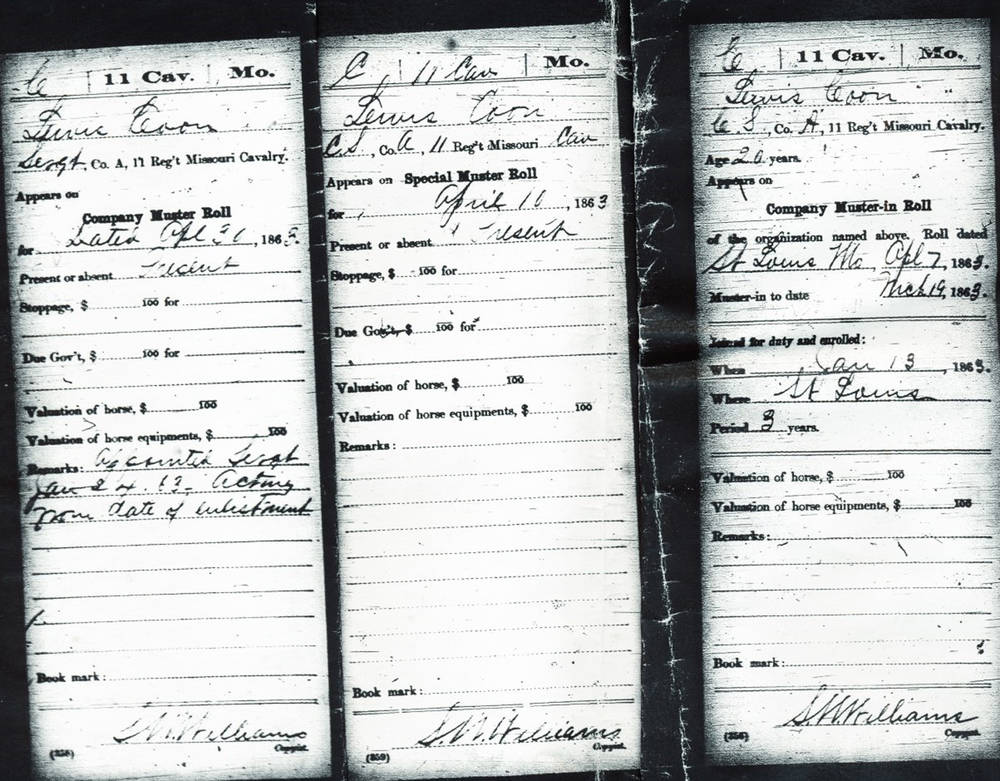 C | 11 Cav. | Mo.
Lewis Coon
Sergt, Co. A, 11 Reg't Missouri Cavalry.
Appears on
Company Muster Roll
for Dated Apl 30, 1863.
Present or absent Present
Stoppage, $ 100 for
Due Gov't, $ 100 for
Valuation of horse, $ 100
Valuation of horse equipments, $ 100
Remarks: Appointed Sergt
Jan 24. 63. Acting
from date of enlistment
Book mark:
S.W. Williams
Copyist.
(358)
C | 11 Cav | Mo.
Lewis Coon
C S, Co. A, 11 Reg't Missouri Cav
Appears on Special Muster Roll
for April 10, 1863
Present or absent Present
Stoppage, $ 100 for
Due Gov't, $ 100 for
Valuation of horse, $ 100
Valuation of horse equipments, $ 100
Remarks:
Book mark:
S.W. Williams
Copyist.
(359)
C | 11 Cav. | Mo.
Lewis Coon
C. S., Co. A, 11 Reg't Missouri Cavalry.
Age 20 years.
Appears on
Company Muster-in Roll
of the organization named above. Roll dated
St Louis Mo, Apl 7, 1863.
Muster-in to date Mch 19, 1863.
Joined for duty and enrolled:
When Jan 13, 1863.
Where St Louis
Period 3 years.
Valuation of horse, $ 100
Valuation of horse equipments, $ 100
Remarks:
Book mark:
S.W. Williams
Copyist.
(356)